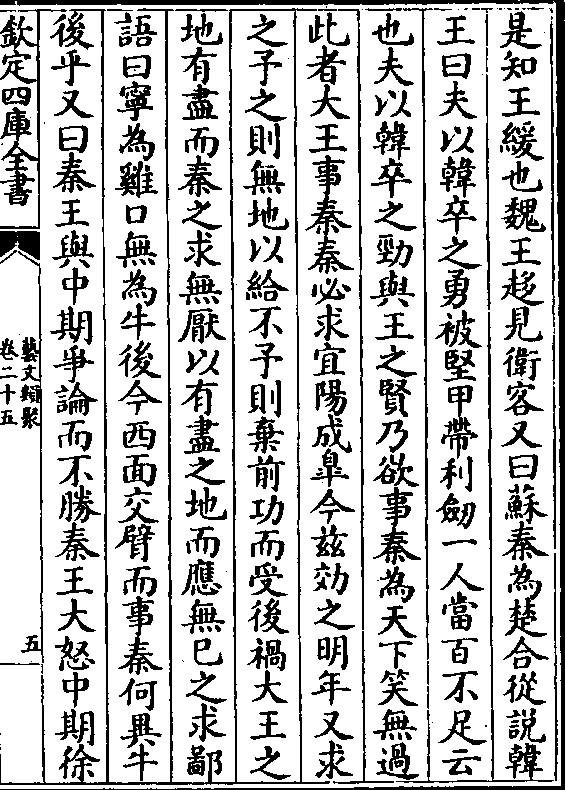 是知王緩也魏王趍見衛客又曰蘇秦為楚合從說韓
王曰夫以韓卒之勇被堅甲帶利劒一人當百不足云
也夫以韓卒之勁與王之賢乃欲事秦為天下笑無過
此者大王事秦秦必求宜陽成臯今兹効之明年又求
之予之則無地以給不予則棄前功而受後禍大王之
地有盡而秦之求無厭以有盡之地而應無已之求鄙
語曰寧為雞口無為牛後今西面交臂而事秦何異牛
後乎又曰秦王與中期爭論而不勝秦王大怒中期徐
欽定四庫全書
藝文類聚
卷二十五
五